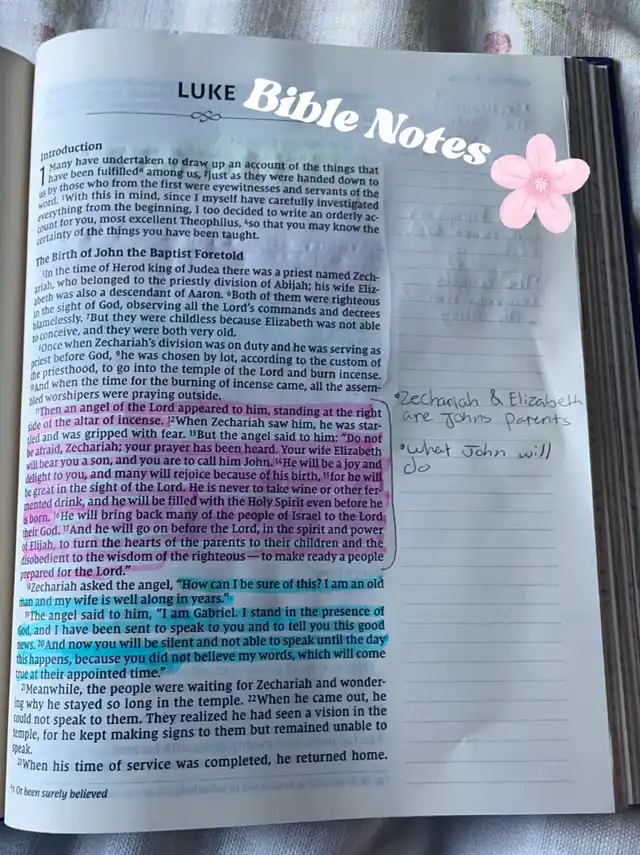 LUKE
Bible Notes
Introduction
1 Many have undertaken to draw up an account of the things that
have been fulfilledᵃ among us, ²just as they were handed down to
us by those who from the first were eyewitnesses and servants of the
word. ³With this in mind, since I myself have carefully investigated
everything from the beginning, I too decided to write an orderly ac-
count for you, most excellent Theophilus, ⁴so that you may know the
certainty of the things you have been taught.
The Birth of John the Baptist Foretold
⁵In the time of Herod king of Judea there was a priest named Zech-
ariah, who belonged to the priestly division of Abijah; his wife Eliz-
abeth was also a descendant of Aaron. ⁶Both of them were righteous
in the sight of God, observing all the Lord's commands and decrees
blamelessly. ⁷But they were childless because Elizabeth was not able
to conceive, and they were both very old.
⁸Once when Zechariah's division was on duty and he was serving as
priest before God, ⁹he was chosen by lot, according to the custom of
the priesthood, to go into the temple of the Lord and burn incense.
¹⁰And when the time for the burning of incense came, all the assem-
bled worshipers were praying outside.
¹¹Then an angel of the Lord appeared to him, standing at the right
side of the altar of incense. ¹²When Zechariah saw him, he was star-
tled and was gripped with fear. ¹³But the angel said to him: "Do not
be afraid, Zechariah; your prayer has been heard. Your wife Elizabeth
will bear you a son, and you are to call him John. ¹⁴He will be a joy and
delight to you, and many will rejoice because of his birth, ¹⁵for he will
be great in the sight of the Lord. He is never to take wine or other fer-
mented drink, and he will be filled with the Holy Spirit even before he
is born. ¹⁶He will bring back many of the people of Israel to the Lord
their God. ¹⁷And he will go on before the Lord, in the spirit and power
of Elijah, to turn the hearts of the parents to their children and the
disobedient to the wisdom of the righteous—to make ready a people
prepared for the Lord."
¹⁸Zechariah asked the angel, "How can I be sure of this? I am an old
man and my wife is well along in years."
¹⁹The angel said to him, "I am Gabriel. I stand in the presence of
God, and I have been sent to speak to you and to tell you this good
news. ²⁰And now you will be silent and not able to speak until the day
this happens, because you did not believe my words, which will come
true at their appointed time."
²¹Meanwhile, the people were waiting for Zechariah and wonder-
ing why he stayed so long in the temple. ²²When he came out, he
could not speak to them. They realized he had seen a vision in the
temple, for he kept making signs to them but remained unable to
speak.
²³When his time of service was completed, he returned home.
ᵃ1 Or been surely believed
•Zechariah & Elizabeth
are Johns parents
•what John will
do